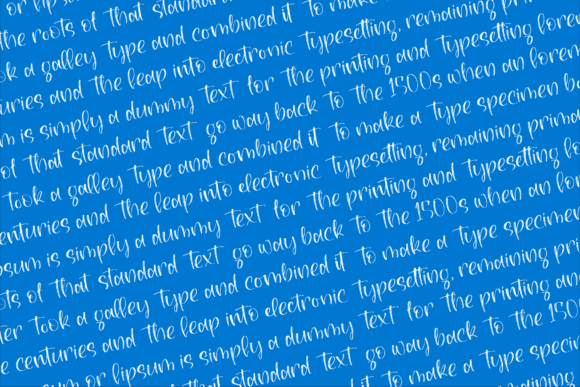 or lipsum
the roots of that standard
ok a galley type and combined it to make
uries and the leap into electronic typesetting, remaining pri
m is simply a dummy text for the printing and typesetting lorem
of that standard text go way back to the 1500s when an lorem
took a galley type and combined it to make a type specimen bo
enturies and the leap into electronic typesetting, remaining prima
psum is simply a dummy text for the printing and typesetting lo
ots of that standard text go way back to the 1500s when an lor
ter took a galley type and combined it to make a type specimen
e centuries and the leap into electronic typesetting, remaining
um or lipsum is simply a dummy text for the printing an
standard text go way back to the 150
combined it to make a